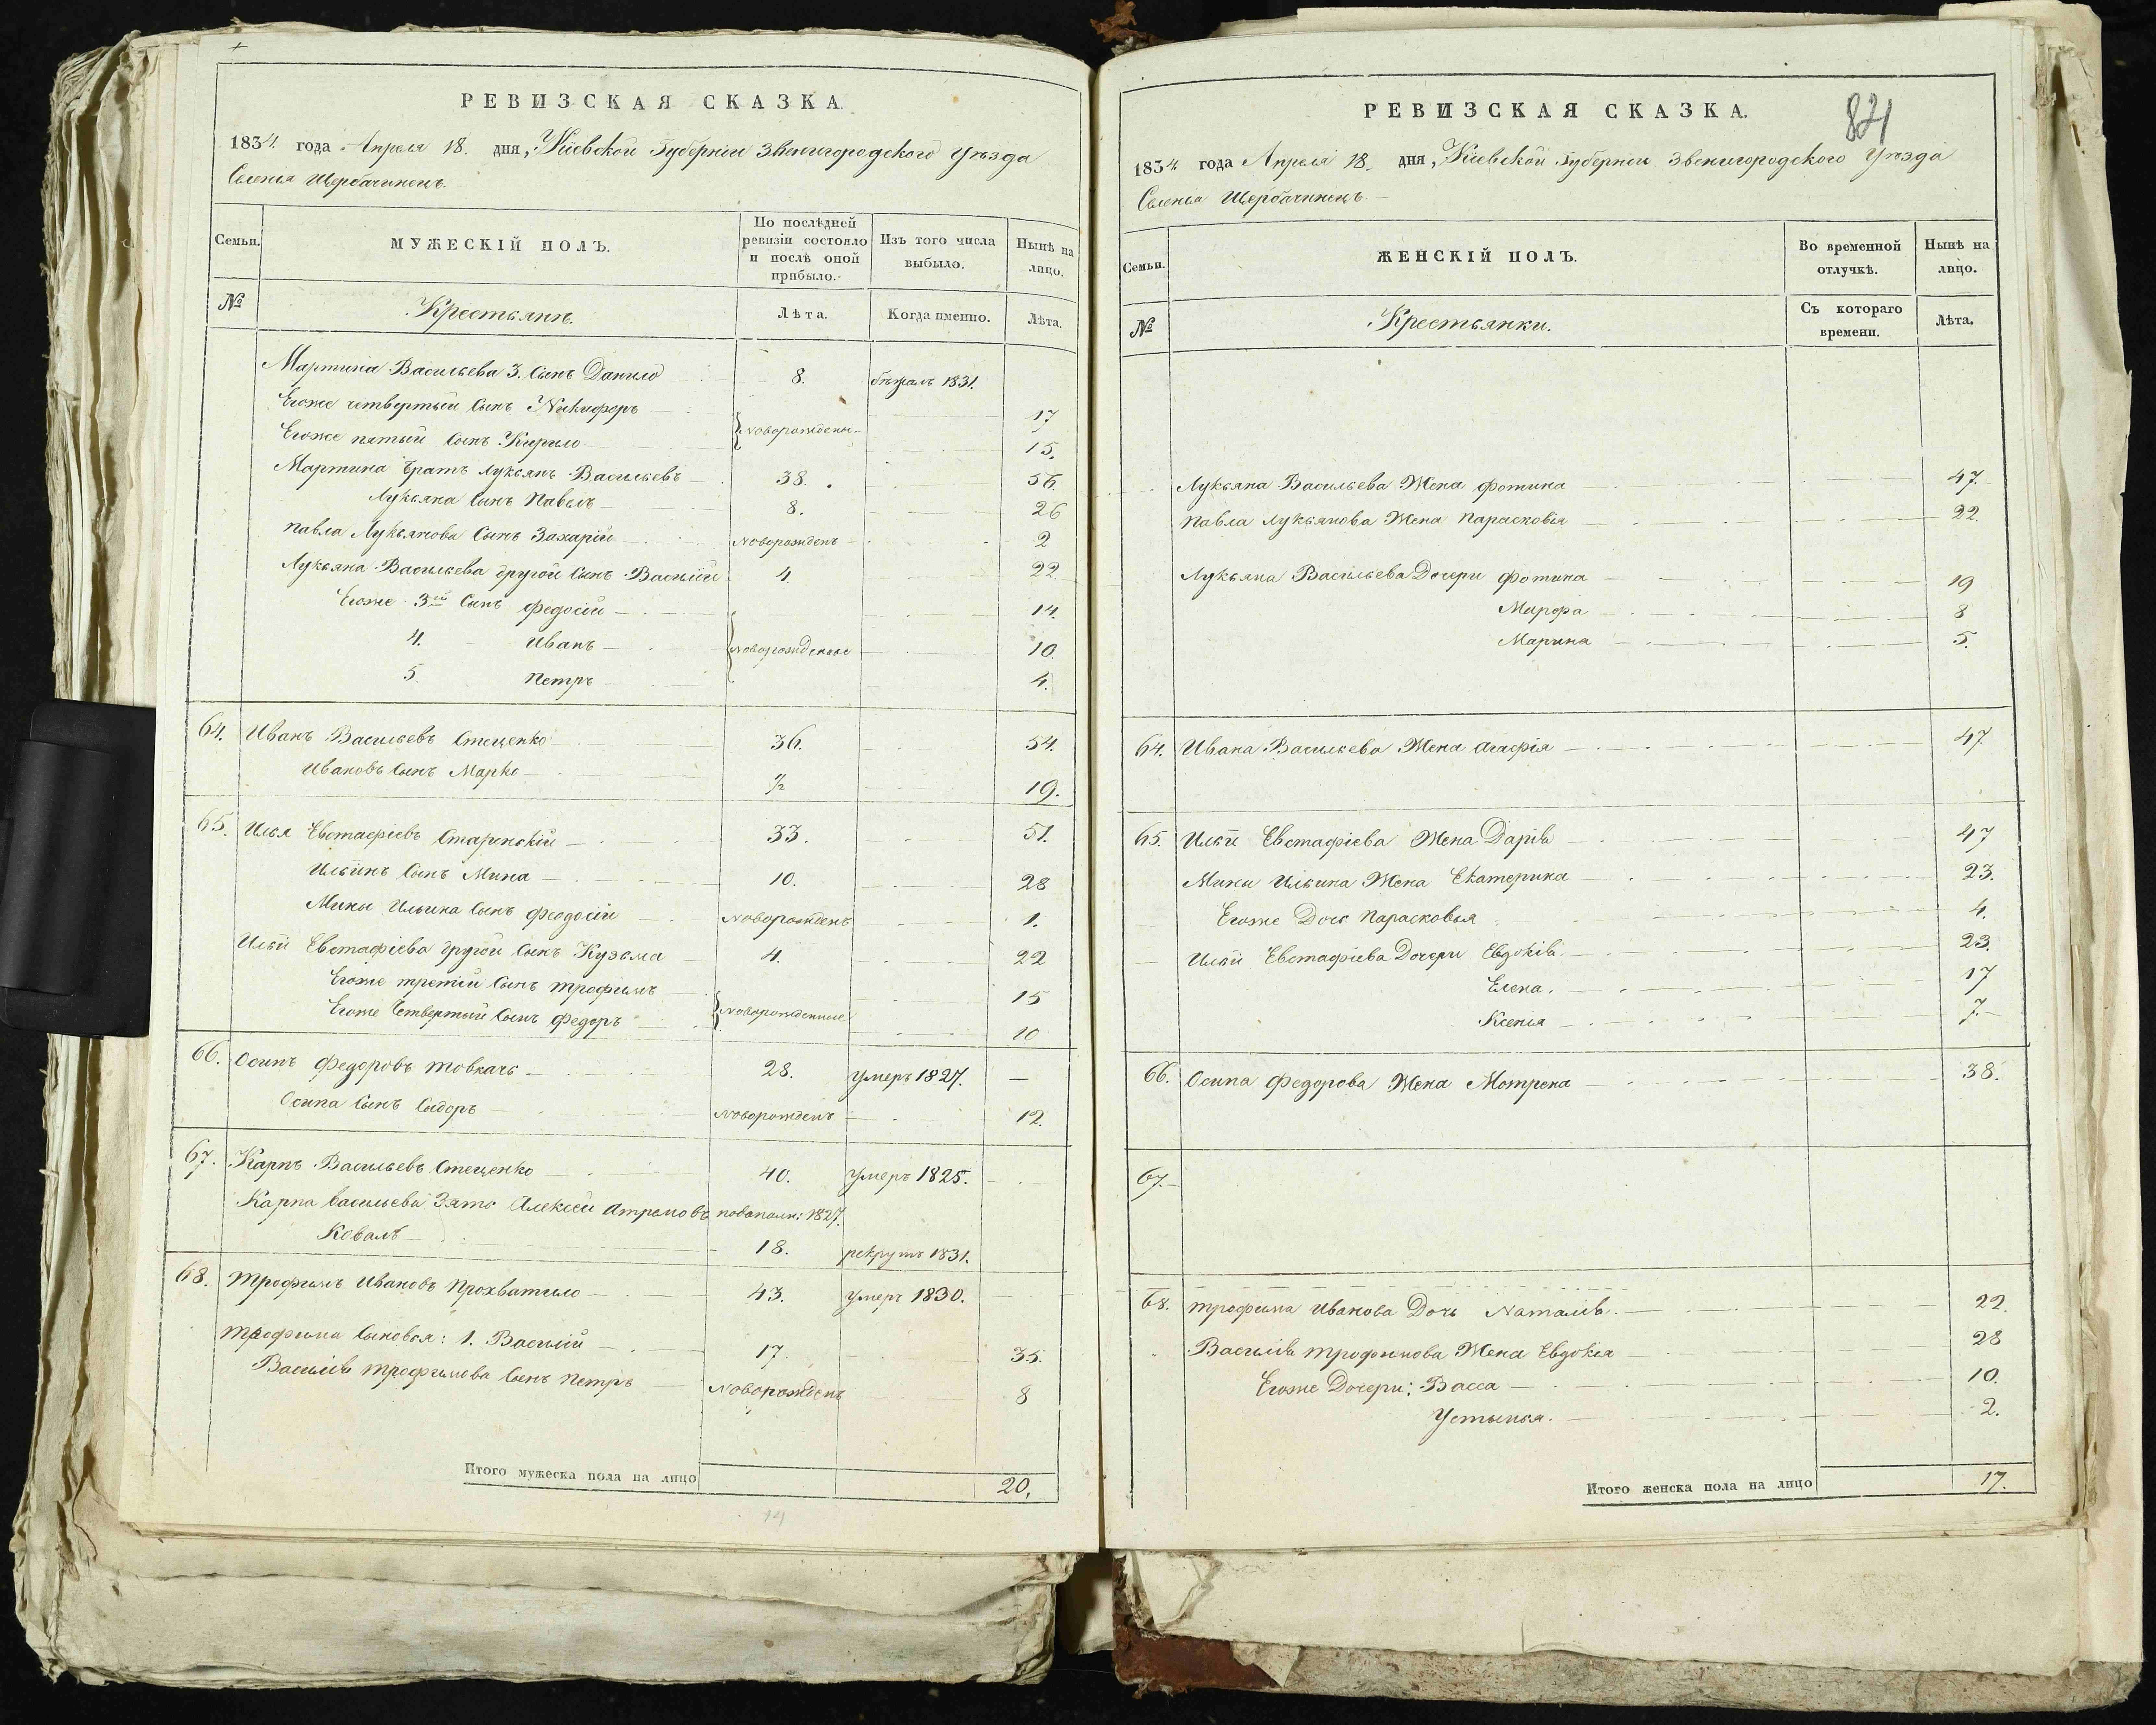 РЕВИЗСКАЯ СКАЗКА.
1834 года Апреля 18. дня, Кіевской Губерніи Звенигородского Уѣзда
Селенія Щербачинецъ.
Семьи. МУЖЕСКІЙ ПОЛЪ. По послѣдней ревизіи состояло и послѣ оной прибыло. Изъ того числа выбыло. Нынѣ на лицо.
№ Крестьянѣ. Лѣта. Когда именно. Лѣта.
Мартина Васильева 3. Сынъ Данило 8. бѣжалъ 1831.
Егоже четвертый Сынъ Никифоръ 17
Егоже пятый Сынъ Кирило новорождены 15.
Мартина братъ Лукьянъ Васильевъ 38. 56.
Лукьяна Сынъ Павелъ 8. 26
Павла Лукьянова Сынъ Захарій новорожденъ 2
Лукьяна Васильева другой Сынъ Василій 4. 22
Егоже 3й Сынъ Федосій 14.
4. Иванъ новорожденые 10.
5. Петръ 4.
64. Иванъ Васильевъ Стеценко 36. 54.
Ивановъ Сынъ Марко 1/2 19.
65. Илья Евстафіевъ Старинскій 33. 51.
Ильинъ Сынъ Мина 10. 28
Мины Ильина Сынъ Феодосій новорожденъ 1.
Ильи Евстафіева другой Сынъ Кузьма 4. 22
Егоже третій Сынъ Трофимъ 15
Егоже Четвертый Сынъ Федоръ новорожденные 10
66. Осипъ Федоровъ Товкачъ 28. умеръ 1827. —
Осипа Сынъ Сидоръ новорожденъ 12.
67. Карпъ Васильевъ Стеценко 40. умеръ 1825.
Карпа Васильева Зять Алексей 1827.
Коваль 18. рекрутъ 1831.
68. Трофимъ Ивановъ Прохватило 43. умеръ 1830.
Трофима Сыновья: 1. Василій 17. 35.
Василія Трофимова Сынъ Петръ новорожденъ 8
Итого мужеска пола на лицо 20.
14
821
РЕВИЗСКАЯ СКАЗКА.
1834 года Апреля 18. дня, Кіевской Губерніи Звенигородского Уѣзда
Селенія Щербачинецъ
Семьи. ЖЕНСКІЙ ПОЛЪ. Во временной отлучкѣ. Нынѣ на лицо.
№ Крестьянки. Съ котораго времени. Лѣта.
Лукьяна Васильева Жена Фотина 47.
Павла Лукьянова Жена Парасковія 22.
Лукьяна Васильева Дочери Фотина 19
Марфа 8
Марина 5.
64. Ивана Васильева Жена Агафія 47
65. Ильи Евстафіева Жена Дарія 47
Мины Ильина Жена Екатерина 23.
Егоже Дочь Парасковья 4.
Ильи Евстафіева Дочери Евдокія 23.
Елена. 17
Ксенія 7.
66. Осипа Федорова Жена Мотрена 38.
67.
68. Трофима Иванова Дочь Наталія. 22.
Василія Трофимова Жена Евдокія 28
Егоже Дочери: Васса 10.
Устинья. 2.
Итого женска пола на лицо 17.